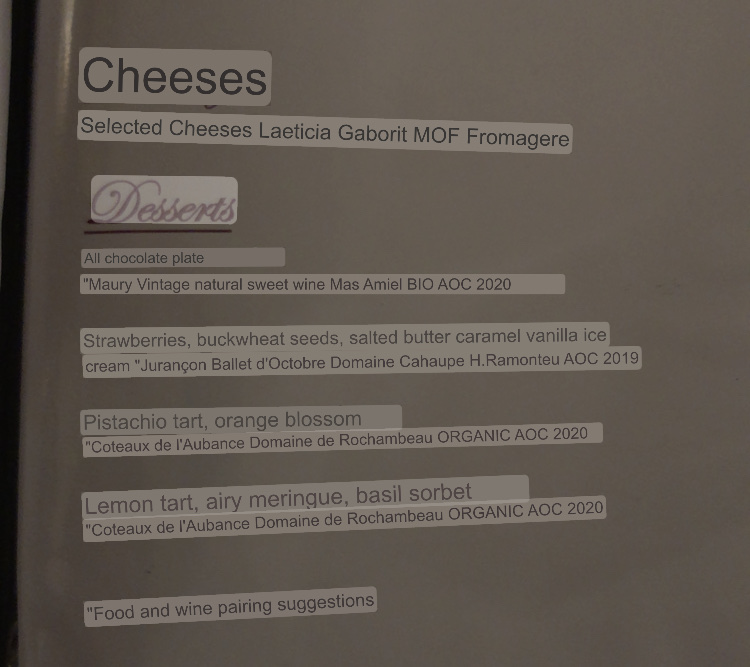 Cheeses
Selected Cheeses Laeticia Gaborit MOF Fromagere
Desserts
All chocolate plate
"Maury Vintage natural sweet wine Mas Amiel BIO AOC 2020
Strawberries, buckwheat seeds, salted butter caramel vanilla ice
cream "Jurançon Ballet d'Octobre Domaine Cahaupe H.Ramonteu AOC 2019
Pistachio tart, orange blossom
"Coteaux de l'Aubance Domaine de Rochambeau ORGANIC AOC 2020
Lemon tart, airy meringue, basil sorbet
"Coteaux de l'Aubance Domaine de Rochambeau ORGANIC AOC 2020
"Food and wine pairing suggestions